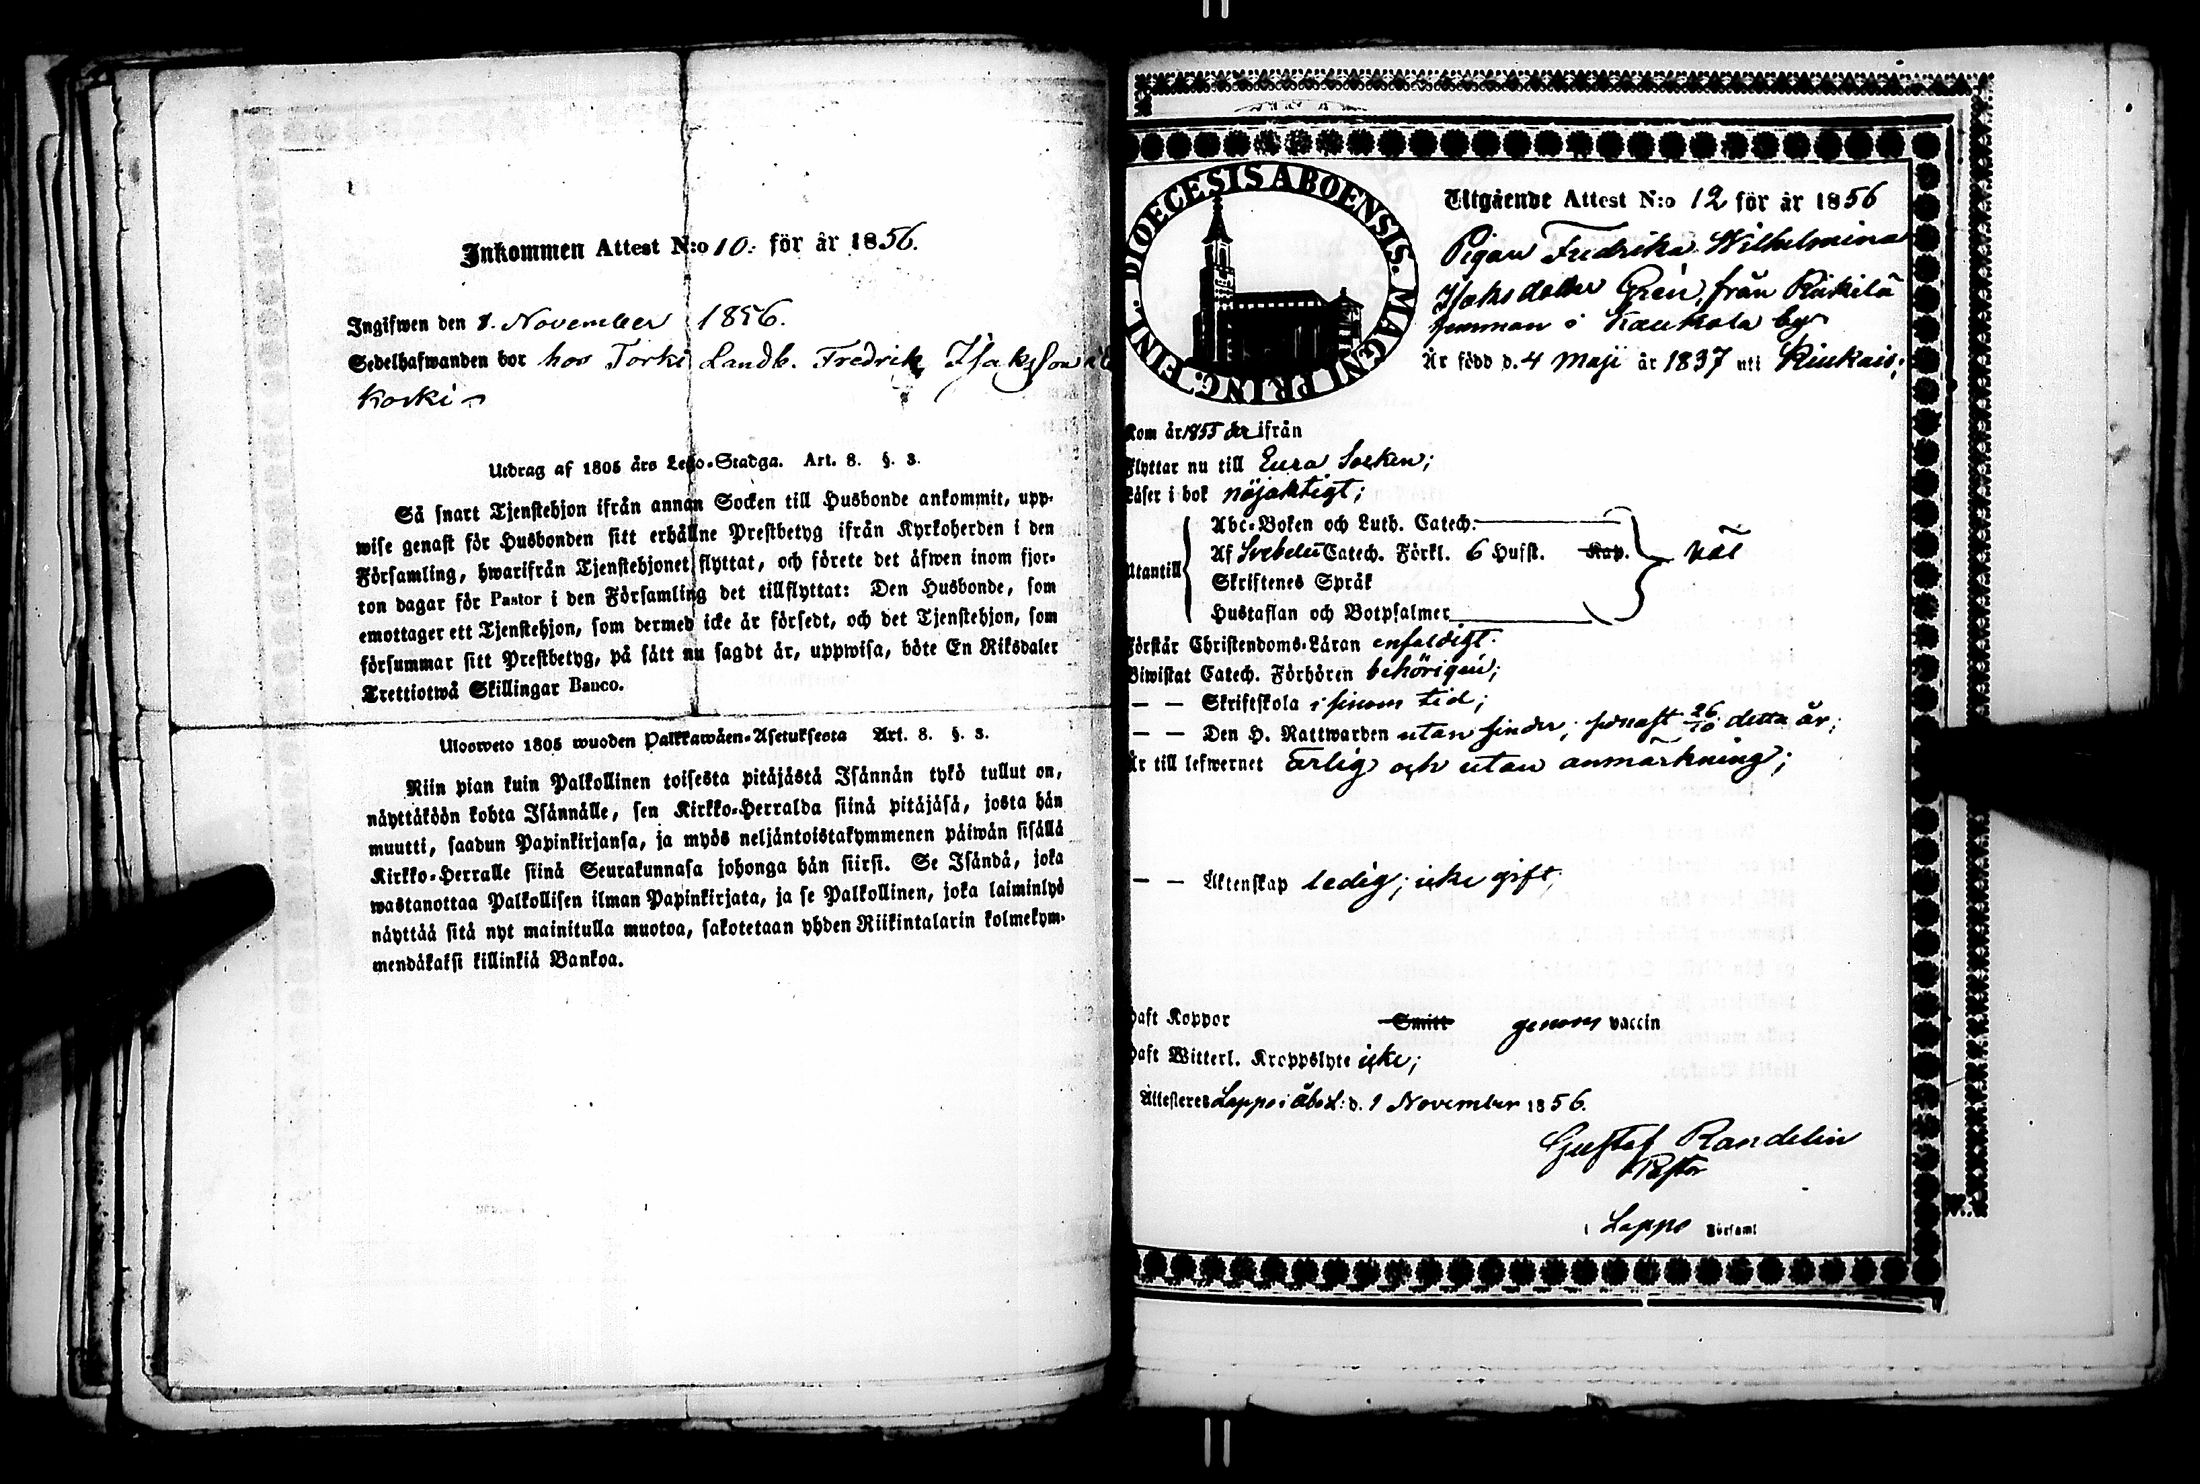 Inkommen Attest N:o 10: för år 1856.
Ingifwen den 1. November 1856.
Sedelhafwanden bor hos Torki Landb. Fredrik Isaksson i
Koski
Utdrag af 1805 års Lego-Stadga. Art. 8. §. 3.
Så snart Tjenstehjon ifrån annan Socken till Husbonde ankommit, upp-
wise genast för Husbonden sitt erhållne Prestbetyg ifrån Kyrkoherden i den
Församling, hwarifrån Tjenstehjonet flyttat, och förete det äfwen inom fjor-
ton dagar för Pastor i den Församling det tillflyttat: Den Husbonde, som
emottager ett Tjenstehjon, som dermed icke är försedt, och det Tjenstehjon, som
försummar sitt Prestbetyg, på sätt nu sagdt är, uppwisa, böte En Riksdaler
Trettiotwå Skillingar Banco.
Ulosweto 1805 wuoden Palkkawäen-Asetuksesta Art. 8. §. 3.
Niin pian kuin Palkollinen toisesta pitäjästä Isännän tykö tullut on,
näyttäköön kohta Isännälle, sen Kirkko-Herralda siinä pitäjäsä, josta hän
muutti, saadun Papinkirjansa, ja myös neljäntoistakymmenen päiwän sisällä
Kirkko-Herralle siinä Seurakunnasa johonga hän siirsi. Se Isändä, joka
wastanottaa Palkollisen ilman Papinkirjata, ja se Palkollinen, joka laiminlyö
näyttää sitä nyt mainitulla muotoa, sakotetaan yhden Riikintalarin kolmekym-
mendäkaksi killinkiä Bankoa.
DIOECESIS ABOENSIS. MAGNI PRING. FINL.
Utgående Attest N:o 12 för år 1856
Pigan Fredrika Wilhelmina
Isaksdotter Grén, från Rickilä
hemman i Kaukola by
Är född d. 4 Maji år 1837 uti Kiukais;
Kom år 1855 der ifrån
Flyttar nu till Eura Socken;
Läser i bok nöjaktigt;
Utantill
Abc-Boken och Luth. Catech.
Af Svebelii Catech. Förkl. 6 Hufst. Kap. väl
Skriftenes Språk
Hustaflan och Botpsalmer
Förstår Christendoms-Läran enfaldigt.
Biwistat Catech. Förhören behörigen;
— — Skriftskola i sinom tid;
— — Den H. Nattwarden utan hinder; senast 26/10 detta år;
Är till lefwernet ärlig och utan anmärkning;
— — Äktenskap ledig; icke gift;
Haft Koppor Smitt genom vaccin
Haft Witterl. Kroppslyte icke;
Attesteres Lappo i Åbo L: d. 1 November 1856.
Gustaf Randelin
Pastor
i Lappo Församl